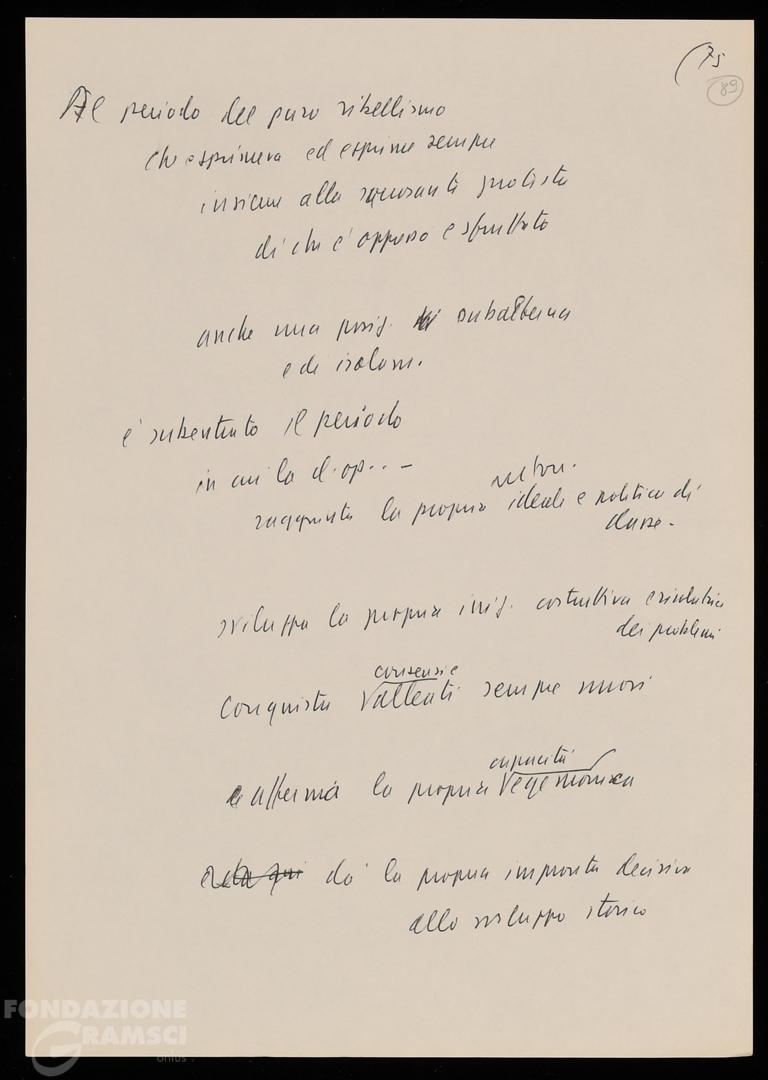 (75
89
Al periodo del puro ribellismo
che esprimeva ed esprime sempre
insieme alla sacrosanta protesta
di chi è oppresso e sfruttato
anche una posiz. di subalterna
e di isolam.
è subentrato il periodo
in cui la cl. op.. –
auton.
raggiunta la propria ideale e politica di
classe.
sviluppa la propria iniz. costruttiva e risolutrice
dei problemi
consensi e
conquista alleati sempre nuovi
capacità
e afferma la propria egemonica
e da qui dà la propria impronta decisiva
allo sviluppo storico
FONDAZIONE
GRAMSCI
onlus